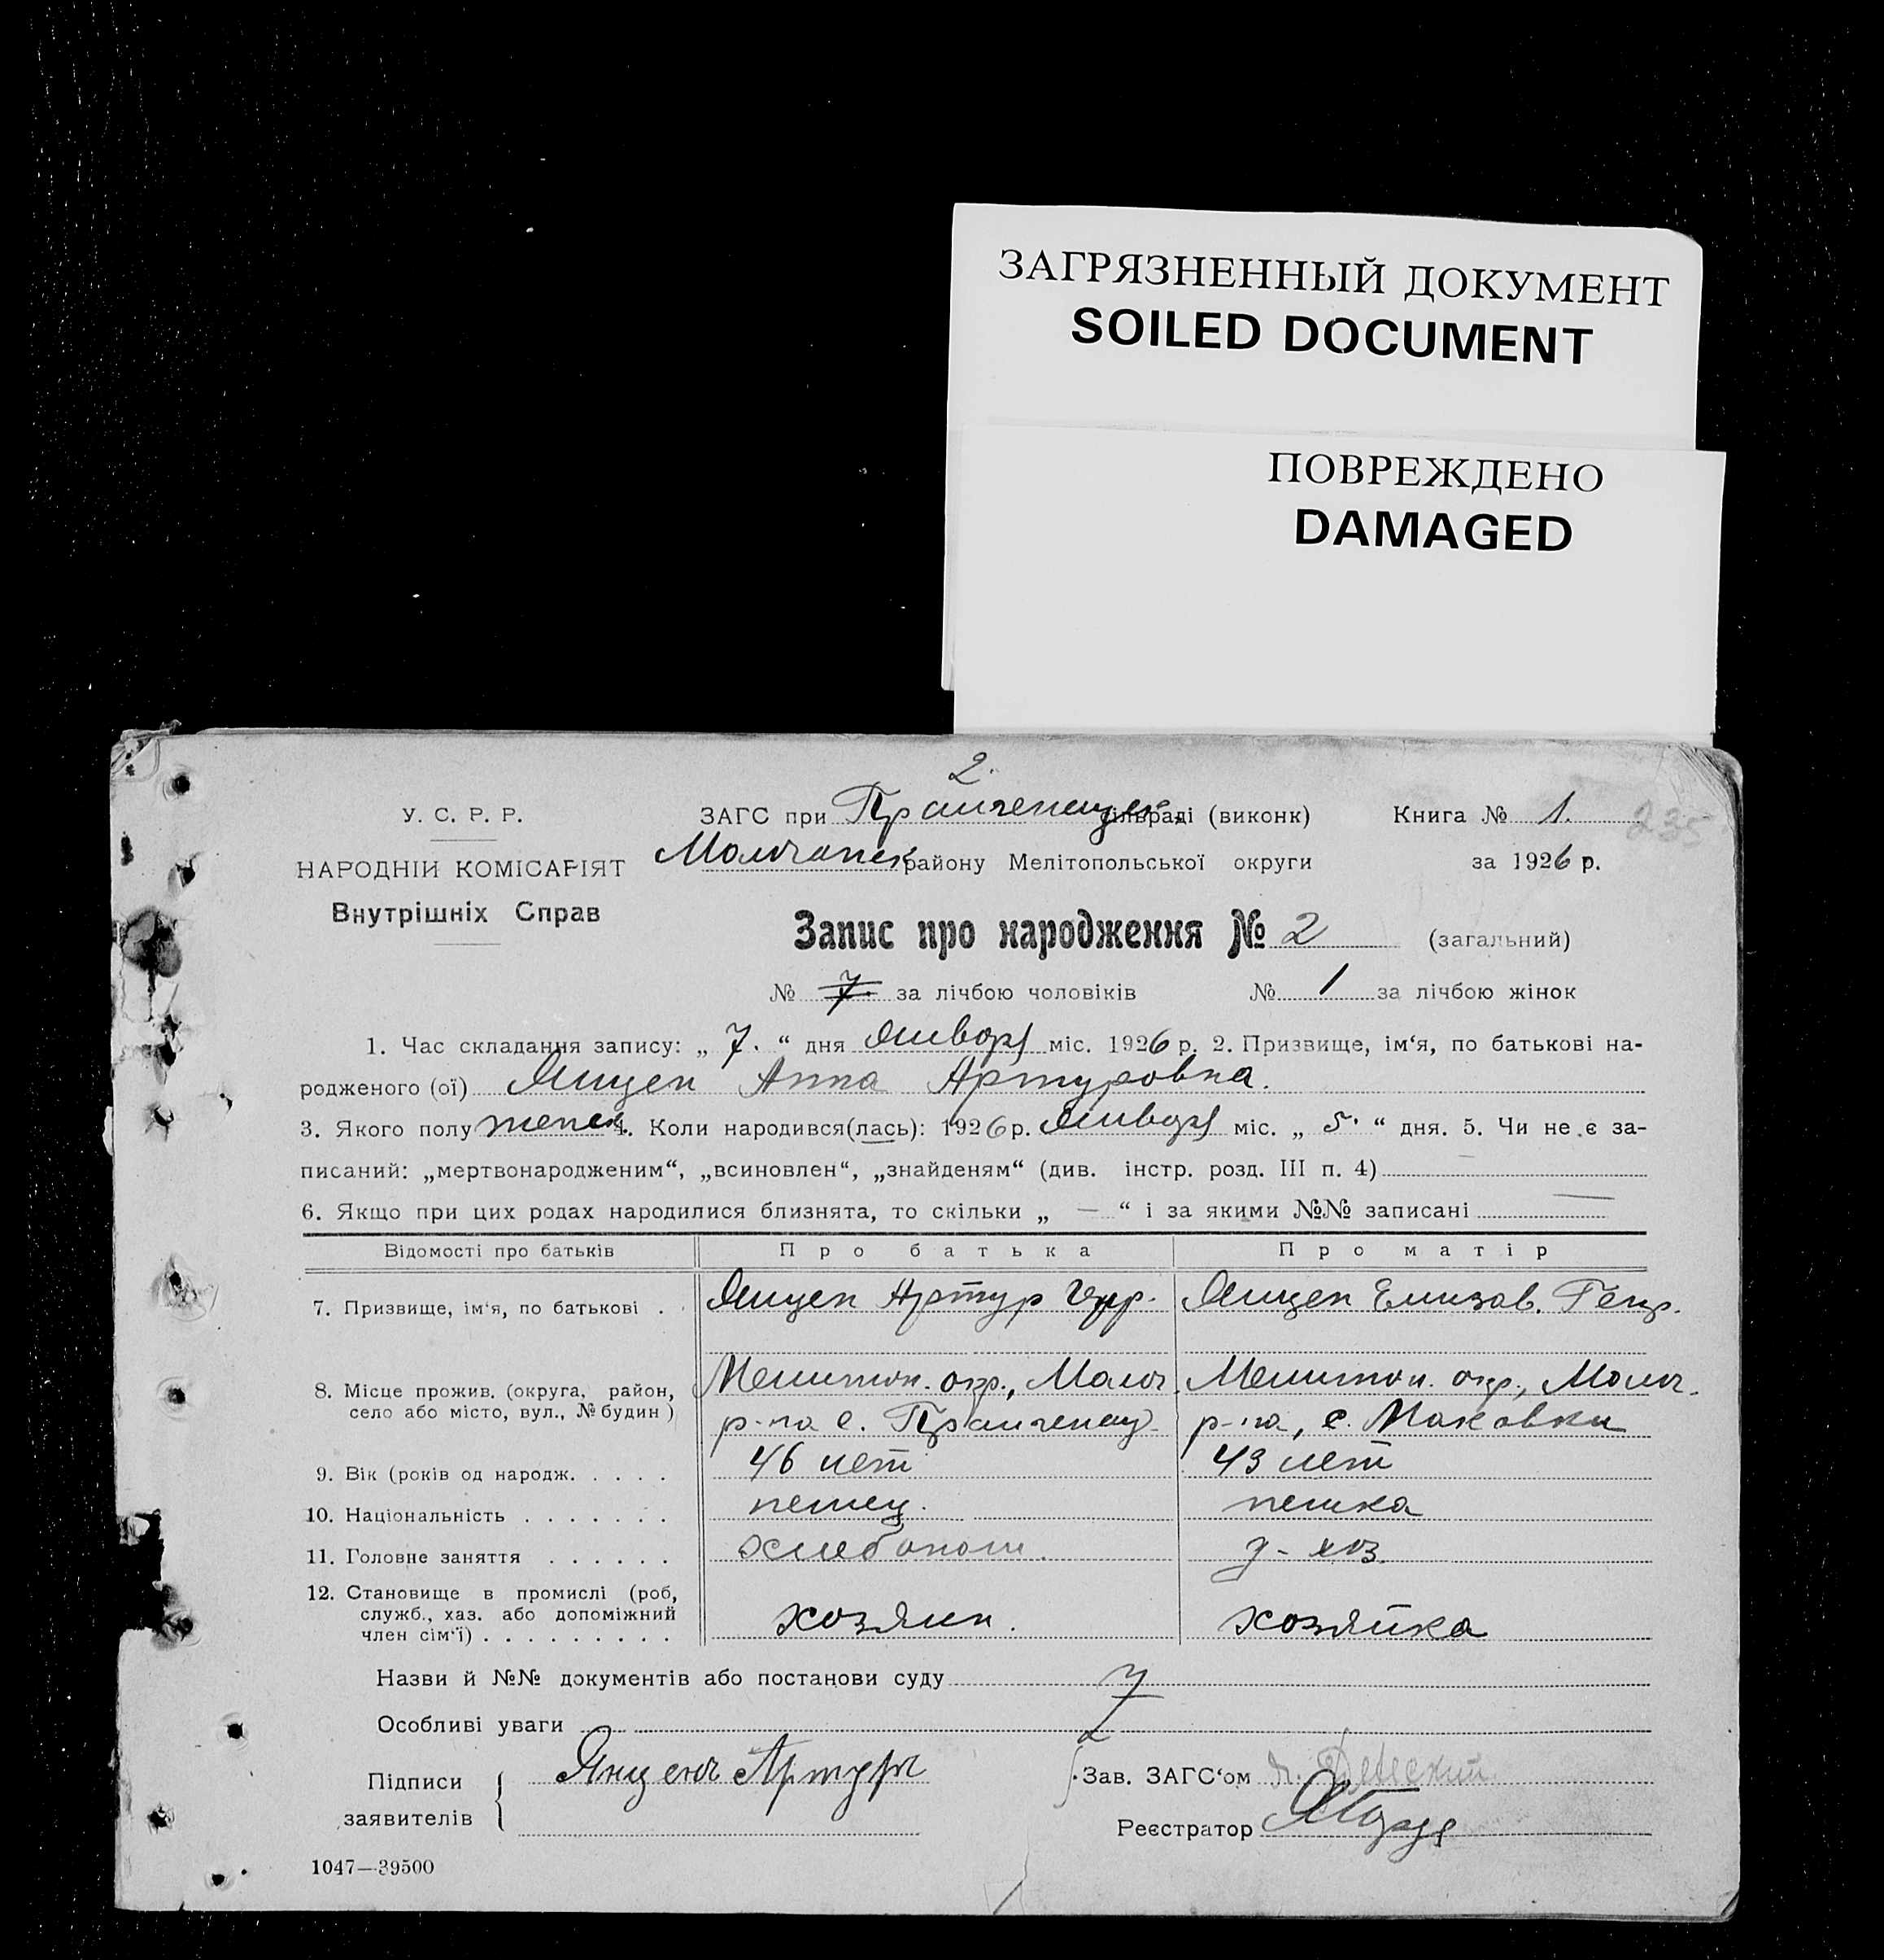 ЗАГРЯЗНЕННЫЙ ДОКУМЕНТ
SOILED DOCUMENT
ПОВРЕЖДЕНО
DAMAGED
2.
У. С. Р. Р.
НАРОДНІЙ КОМІСАРІЯТ
Внутрішніх Справ
ЗАГС при Пришенецк. сільраді (виконк)
Молочанск району Мелітопольської округи
Книга № 1.
235
за 1926 р.
Запис про народження № 2 (загальний)
№ 7. за лічбою чоловіків № 1 за лічбою жінок
1. Час складання запису: „ 7. “ дня января міс. 1926 р. 2. Призвище, ім‘я, по батькові на-
родженого (ої) Янцен Анна Артуровна.
3. Якого полу женск. 4. Коли народився(лась): 1926 р. января міс. „ 5. “ дня. 5. Чи не є за-
писаний: „мертвонародженим“, „всиновлен“, „знайденям“ (див. інстр. розд. III п. 4)
6. Якщо при цих родах народилися близнята, то скільки „ — “ і за якими №№ записані —
Відомості про батьків Про батька Про матір
7. Призвище, ім‘я, по батькові . Янцен Артур Янцен Елизав. Генр.
8. Місце прожив. (округа, район, Мелитоп. окр., Молоч. Мелитоп. окр., Молоч.
село або місто, вул., № будин ) р-на с. р-на, с. Маковки
9. Вік (років од народж. . . . . 46 лет 43 лет
10. Національність . . . . . . . немец. немка
11. Головне заняття . . . . . . хлебопаш. д-хоз.
12. Становище в промислі (роб,
служб., хаз. або допоміжний
член сім‘ї) . . . . . . . . . хозяин. хозяйка
Назви й №№ документів або постанови суду
Особливі уваги
Підписи
заявителів
Янценъ Артуръ
Зав. ЗАГС‘ом
Реєстратор
1047—39500